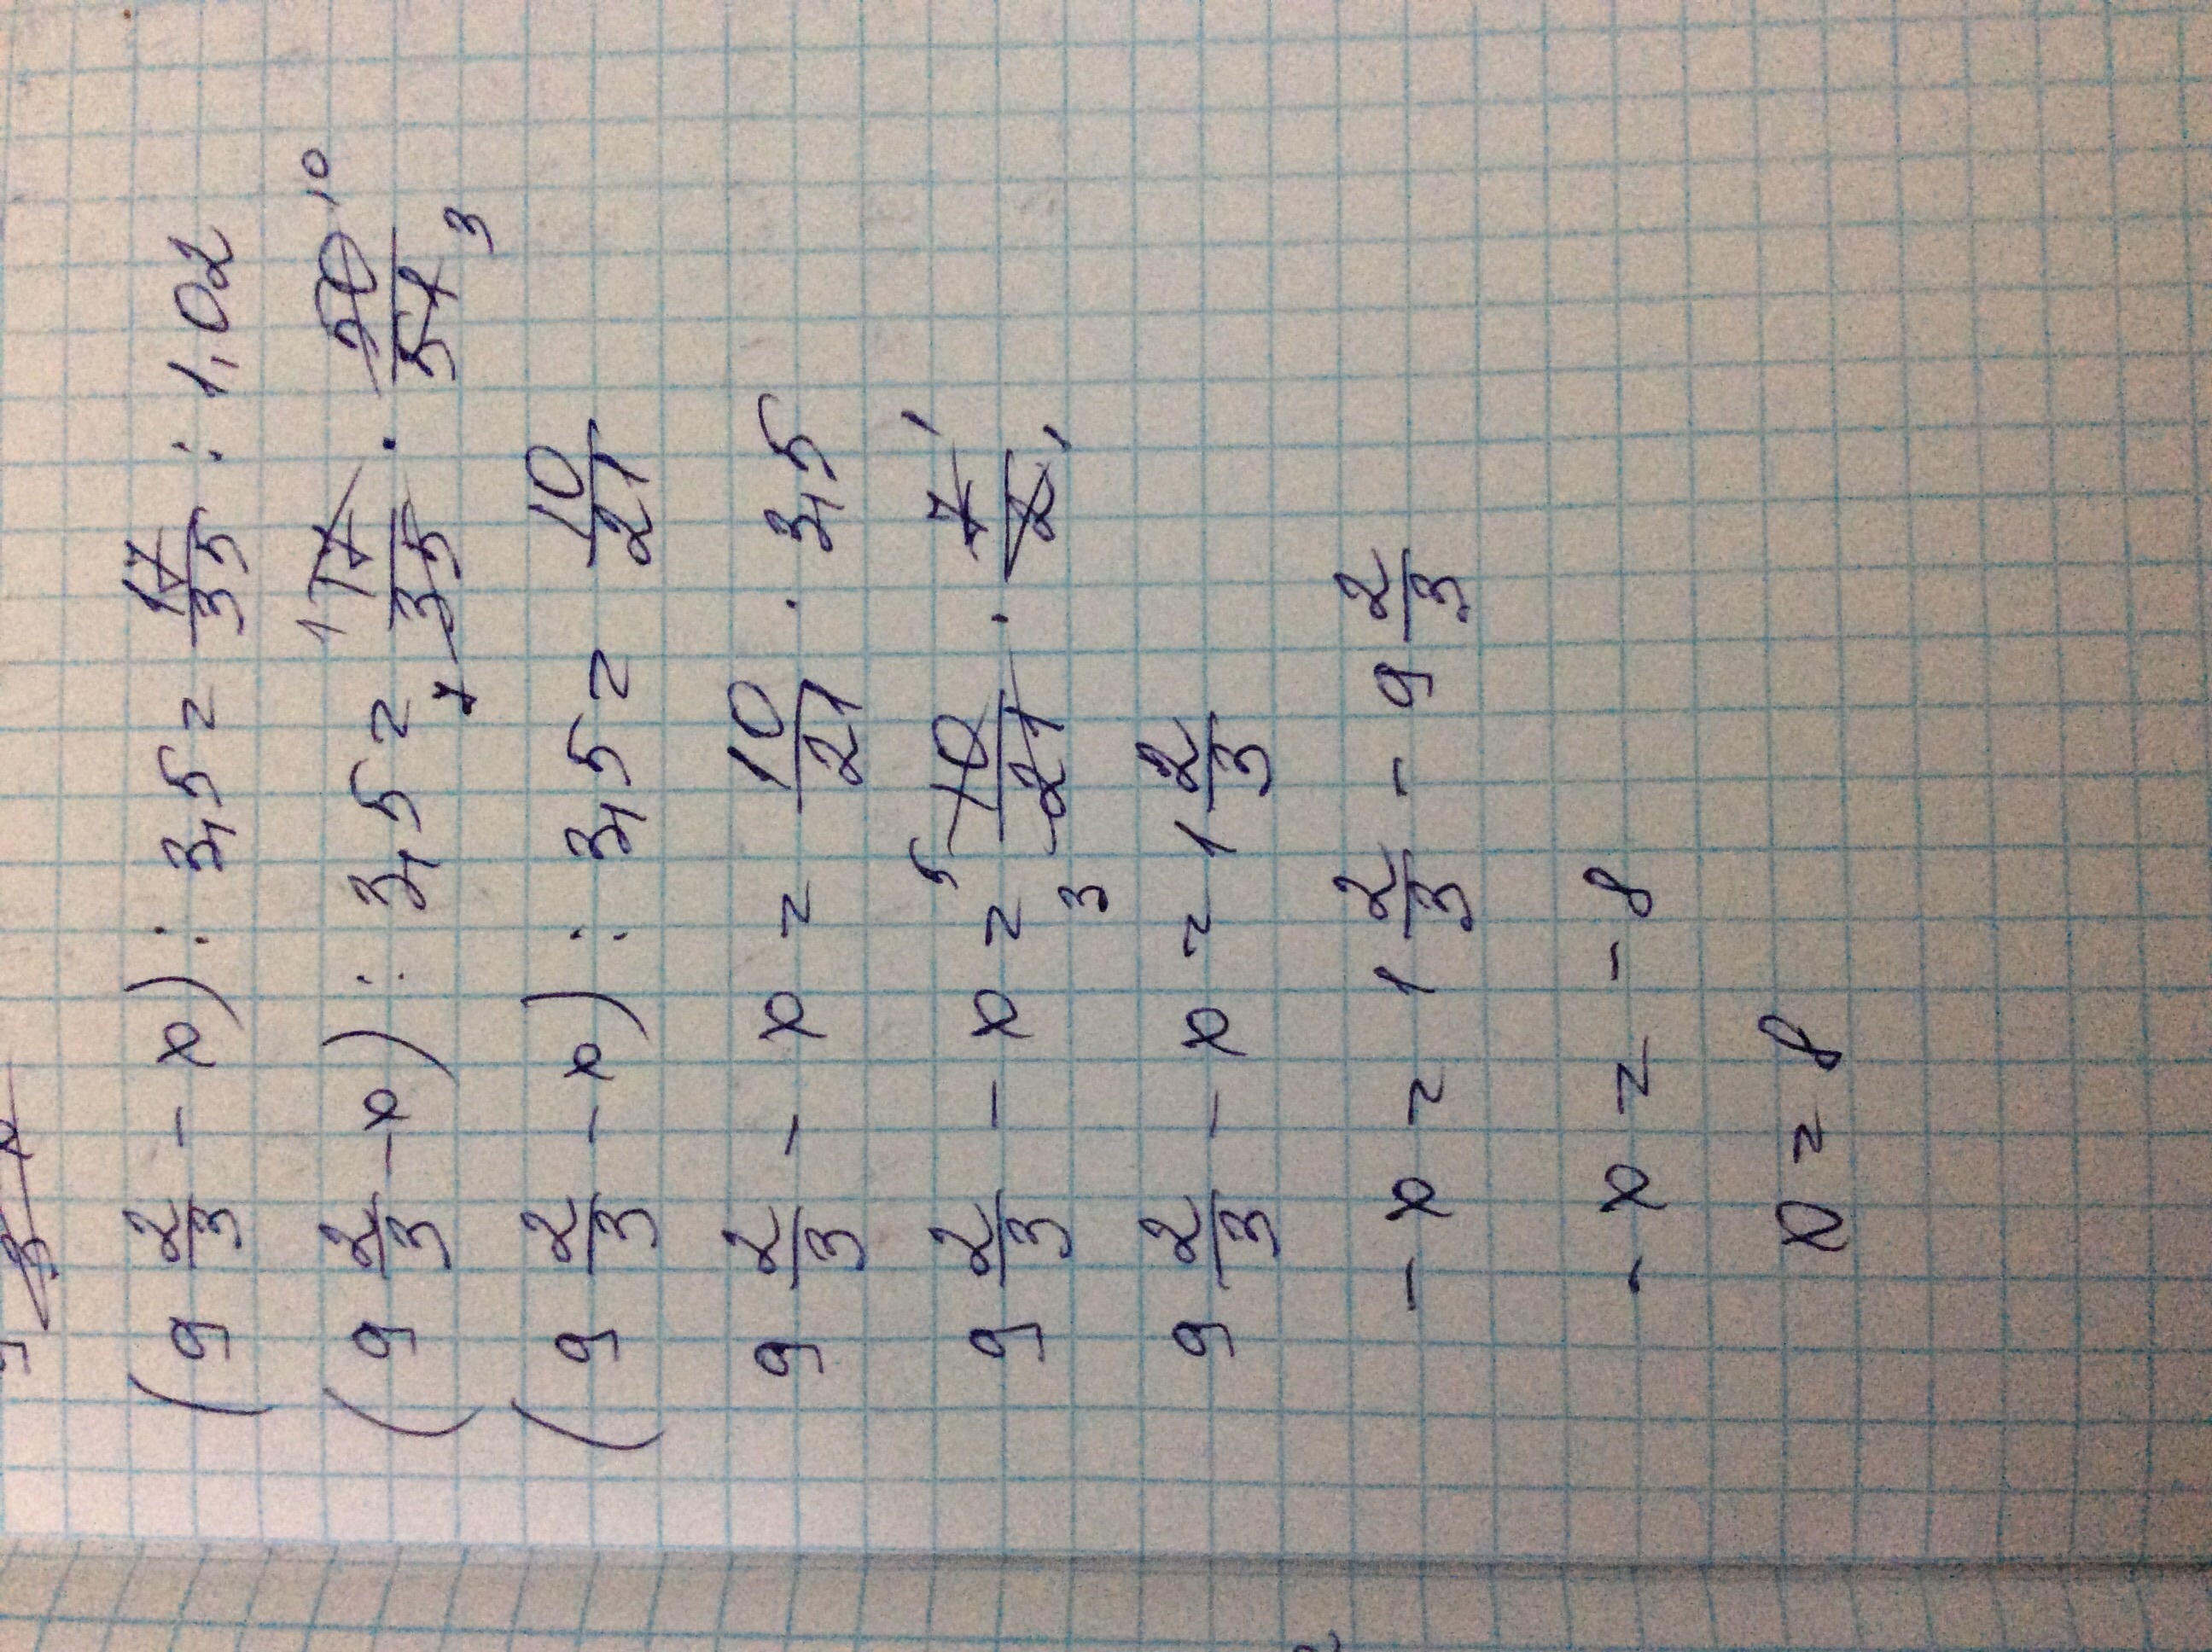 (9 2/3 - x) : 3,5 = 17/35 : 1,02
(9 2/3 - x) : 3,5 = 17/35 · 50/51 1 10 7 3
(9 2/3 - x) : 3,5 = 10/21
9 2/3 - x = 10/21 · 3,5
9 2/3 - x = 10/21 · 7/2 5 1 3 1
9 2/3 - x = 1 2/3
- x = 1 2/3 - 9 2/3
- x = - 8
x = 8